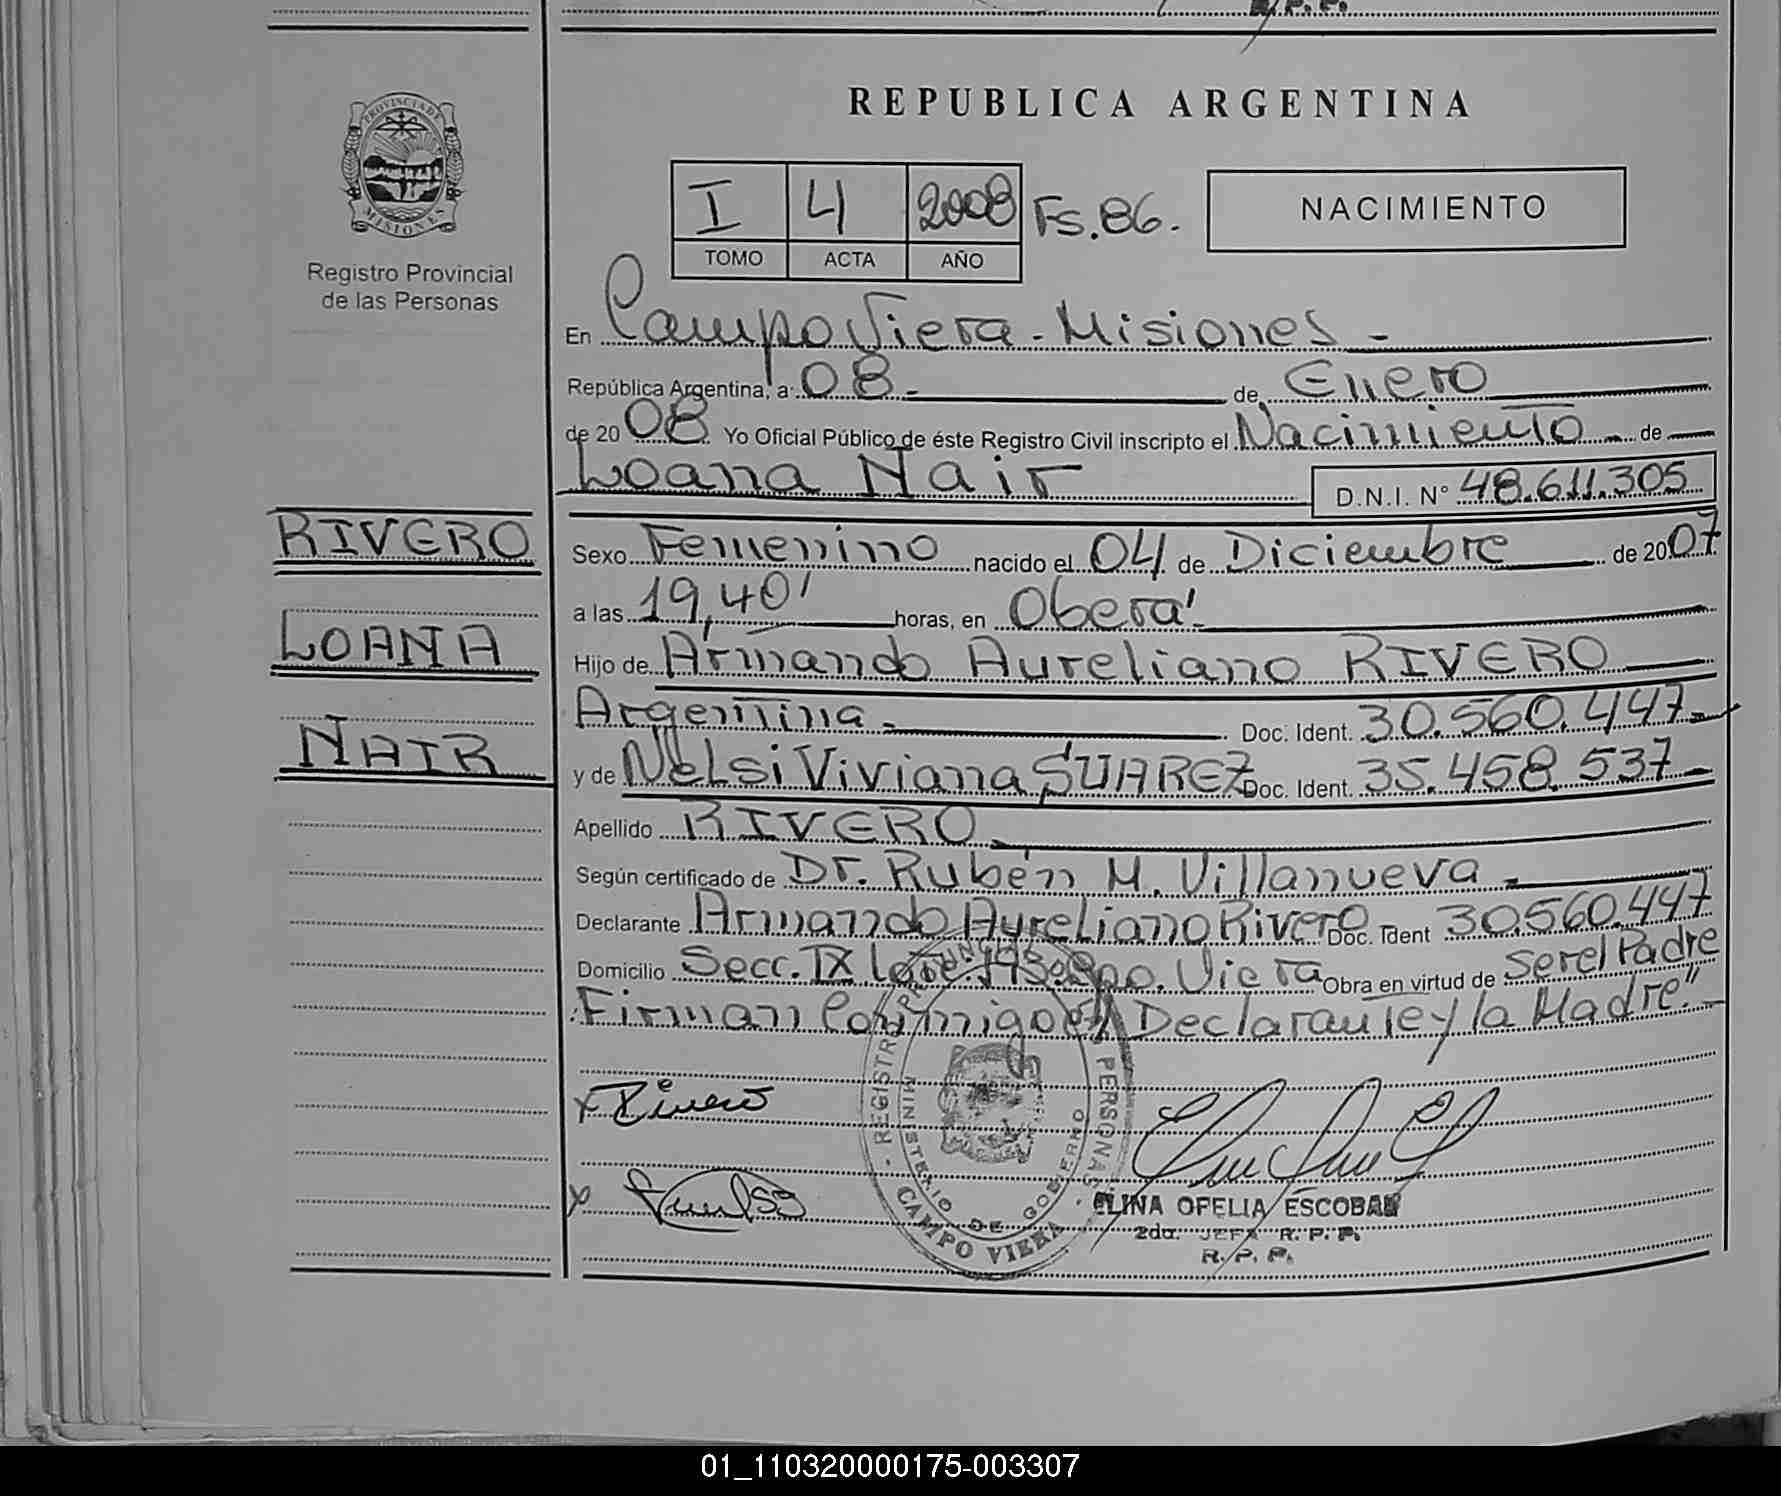 R. P. P.
REPUBLICA ARGENTINA
PROVINCIA DE MISIONES
Registro Provincial
de las Personas
I 4 2008 Fs. 86.
TOMO ACTA AÑO
NACIMIENTO
En Campo Viera - Misiones -
República Argentina, a 08 - de Enero
de 2008 Yo Oficial Público de éste Registro Civil inscripto el Nacimiento de
Loana Nair D.N.I. N° 48.611.305
RIVERO
LOANA
NAIR
Sexo Femenino nacido el 04 de Diciembre de 2007
a las 19,40' horas, en Oberá
Hijo de Armando Aureliano RIVERO
Argentina - Doc. Ident. 30.560.447-
y de Nelsi Viviana SUAREZ Doc. Ident. 35.458.537-
Apellido RIVERO
Según certificado de Dr. Rubén M. Villanueva -
Declarante Armando Aureliano Rivero Doc. Ident 30.560.447
Domicilio Secc. IX Lote Cpo. Viera Obra en virtud de Ser el Padre
Firman Conmigo el Declarante y la Madre."
x Rivero
x
REGISTRO PROVINCIAL PERSONAS
MINISTERIO DE GOBIERNO
CAMPO VIERA
ELINA OFELIA ESCOBAR
2da. JEFA R. P. P.
R. P. P.
01_110320000175-003307